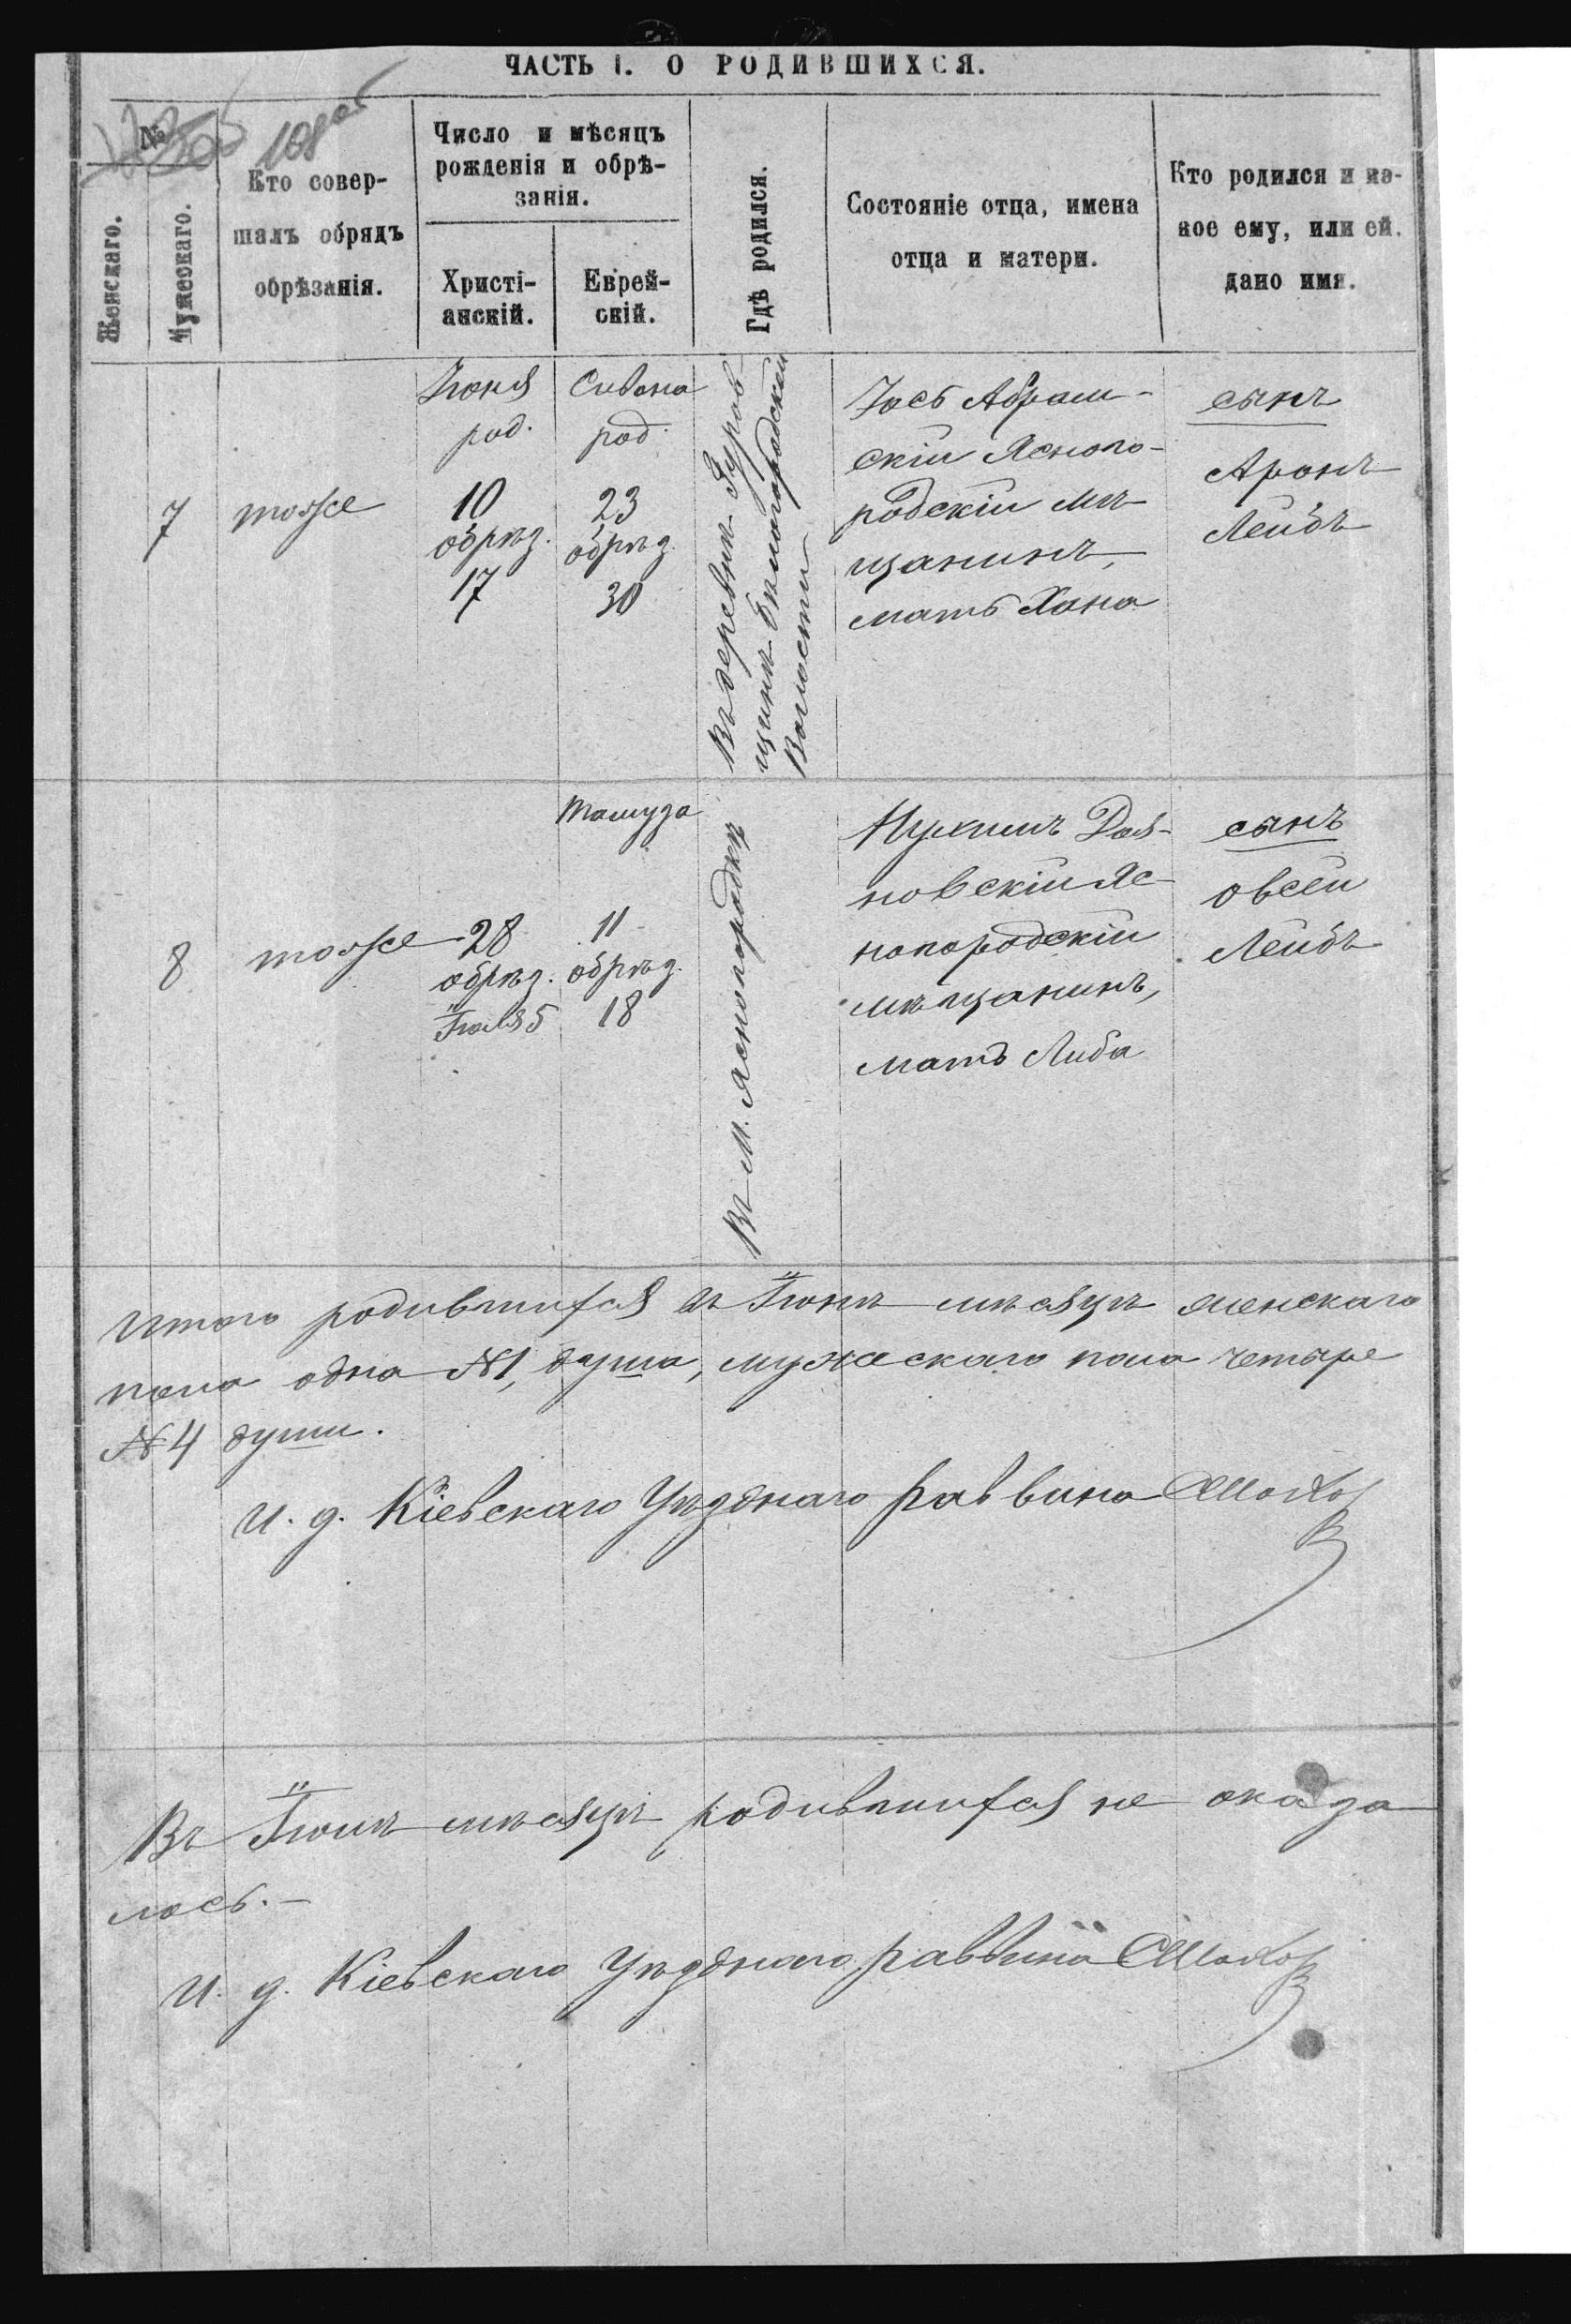 ЧАСТЬ I. О РОДИВШИХСЯ.
№
108 об
Женскаго.
Мужескаго.
Кто совер-
шалъ обрядъ
обрѣзанія.
Число и мѣсяцъ
рожденія и обрѣ-
занія.
Христі-
анскій.
Еврей-
скій.
Гдѣ родился.
Состояніе отца, имена
отца и матери.
Кто родился и ка-
кое ему, или ей.
дано имя.
7
тотже
Іюня
род.
10
обрѣз.
17
Сивона
род.
23
обрѣз.
30
Въ деревнѣ Гуров-
щинѣ Бѣлогородской
Волости
Іось Абрам-
скій Ясного-
родскій мѣ-
щанинъ,
мать Хана
сынъ
Аронъ
Лейбъ
8
тотже
28
обрѣз.
Іюля 5
Тамуза
11
обрѣз.
18
Въ М. Ясногородкѣ
Нухимъ Дая-
новскій Яс-
ногородскій
мѣщанинъ,
мать Либа
сынъ
Овсей
Лейбъ
Итого родившихся въ Іюнѣ мѣсяцѣ женскаго
пола одна № 1, душа, мужескаго пола четыре
№ 4 души.
И. д. Кіевскаго Уѣзднаго раввина
Въ Іюлѣ мѣсяцѣ родившихся не оказа
лось.—
И. д. Кіевскаго Уѣзднаго раввина